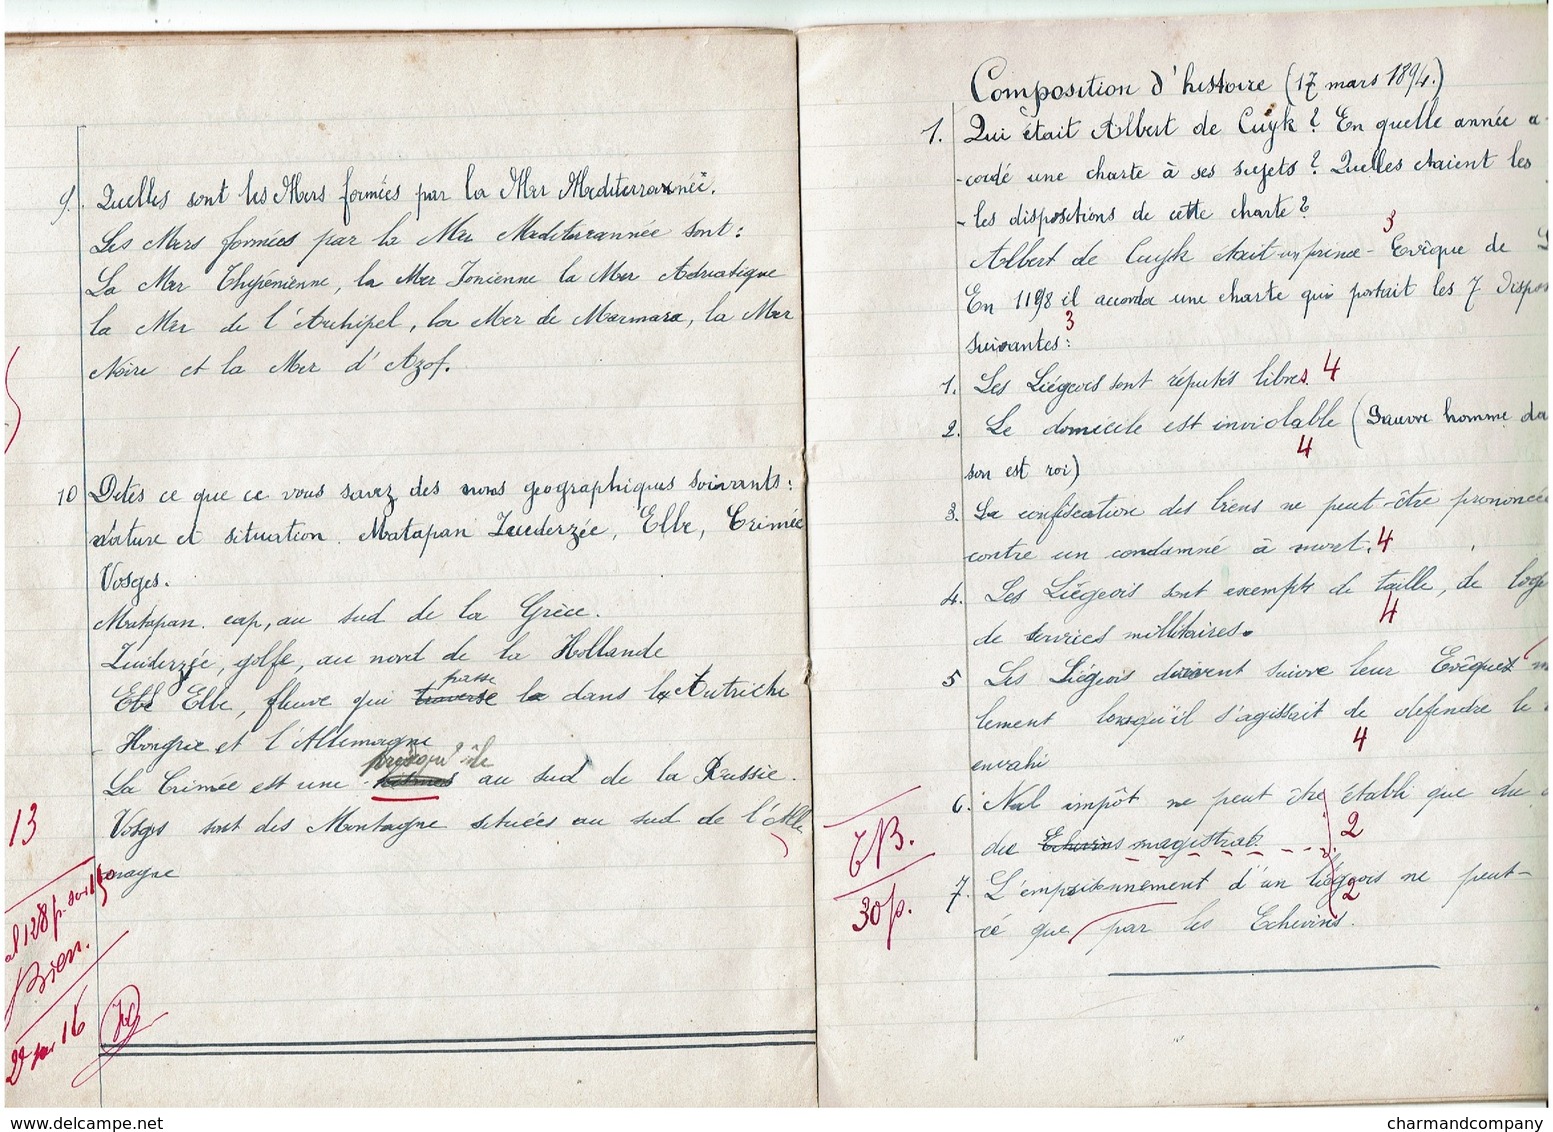 9. Quelles sont les Mers formées par la Mer Mediterrannée.
Les Mers formées par la Mer Mediterrannée sont:
La Mer Thyrénienne, la Mer Ionienne la Mer Adriatique
la Mer de l'Archipel, la Mer de Marmara, la Mer
Noire et la Mer d'Azof.
10 Dites ce que ce vous savez des noms geographiques suivants:
nature et situation. Matapan Zuiderzée, Elbe, Crimée
Vosges.
Matapan. cap, au sud de la Grèce.
Zuiderzée, golfe, au nord de la Hollande
passe
Elbe, fleuve qui traverse la dans la Autriche
Hongrie et l'Allemagne
presqu'île
La Crimée est une au sud de la Russie.
Vosges sont des Montagne situées au sud de l'Alle
magne
13
al 128 p. sur 150
Bien.
2e sur 16
Composition d'histoire (17 mars 1894.)
1. Qui était Albert de Cuyk? En quelle année a-
-cordé une charte à ses sujets? Quelles étaient les
-les dispositions de cette charte?
3
Albert de Cuyk était un prince-Evêque de L
En 1198 il accorda une charte qui portait les 7 dispo
3
suivantes:
1. Les Liégeois sont réputés libres. 4
2. Le domicile est inviolable (Pauvre homme da
4
son est roi)
3. La confiscation des biens ne peut-être prononcée
contre un condamné à mort. 4
4. Les Liégeois sont exempts de taille, de loge
4
de services millitaires.
5 Les Liégeois doivent suivre leur Evêque
lement lorsqu'il s'agissait de defendre le
4
envahi
6. Nul impôt ne peut être établi que du
du Echevins magistrat. 2
7. L'emprisonnement d'un liégeois ne peut-
2
cé que par les Echevins.
TB.
30 p.
charmandcompany.com